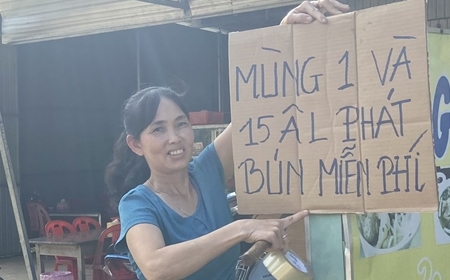 MÙNG 1 VÀ
15 ÂL PHÁT
BÚN MIỄN PHÍ
G